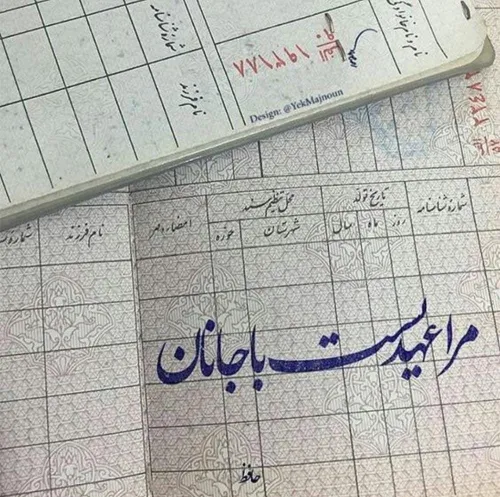 نام و نام خانوادگی
شماره شناسنامه
نام فرزند
۱۹۲۱۸۸
Design: @YekMajnoun
شماره شناسنامه
تاریخ تولد
روز
ماه
سال
محل تنظیم سند
شهرستان
حوزه
امضاء و مهر
نام فرزند
مرا عهدیست با جانان
حافظ